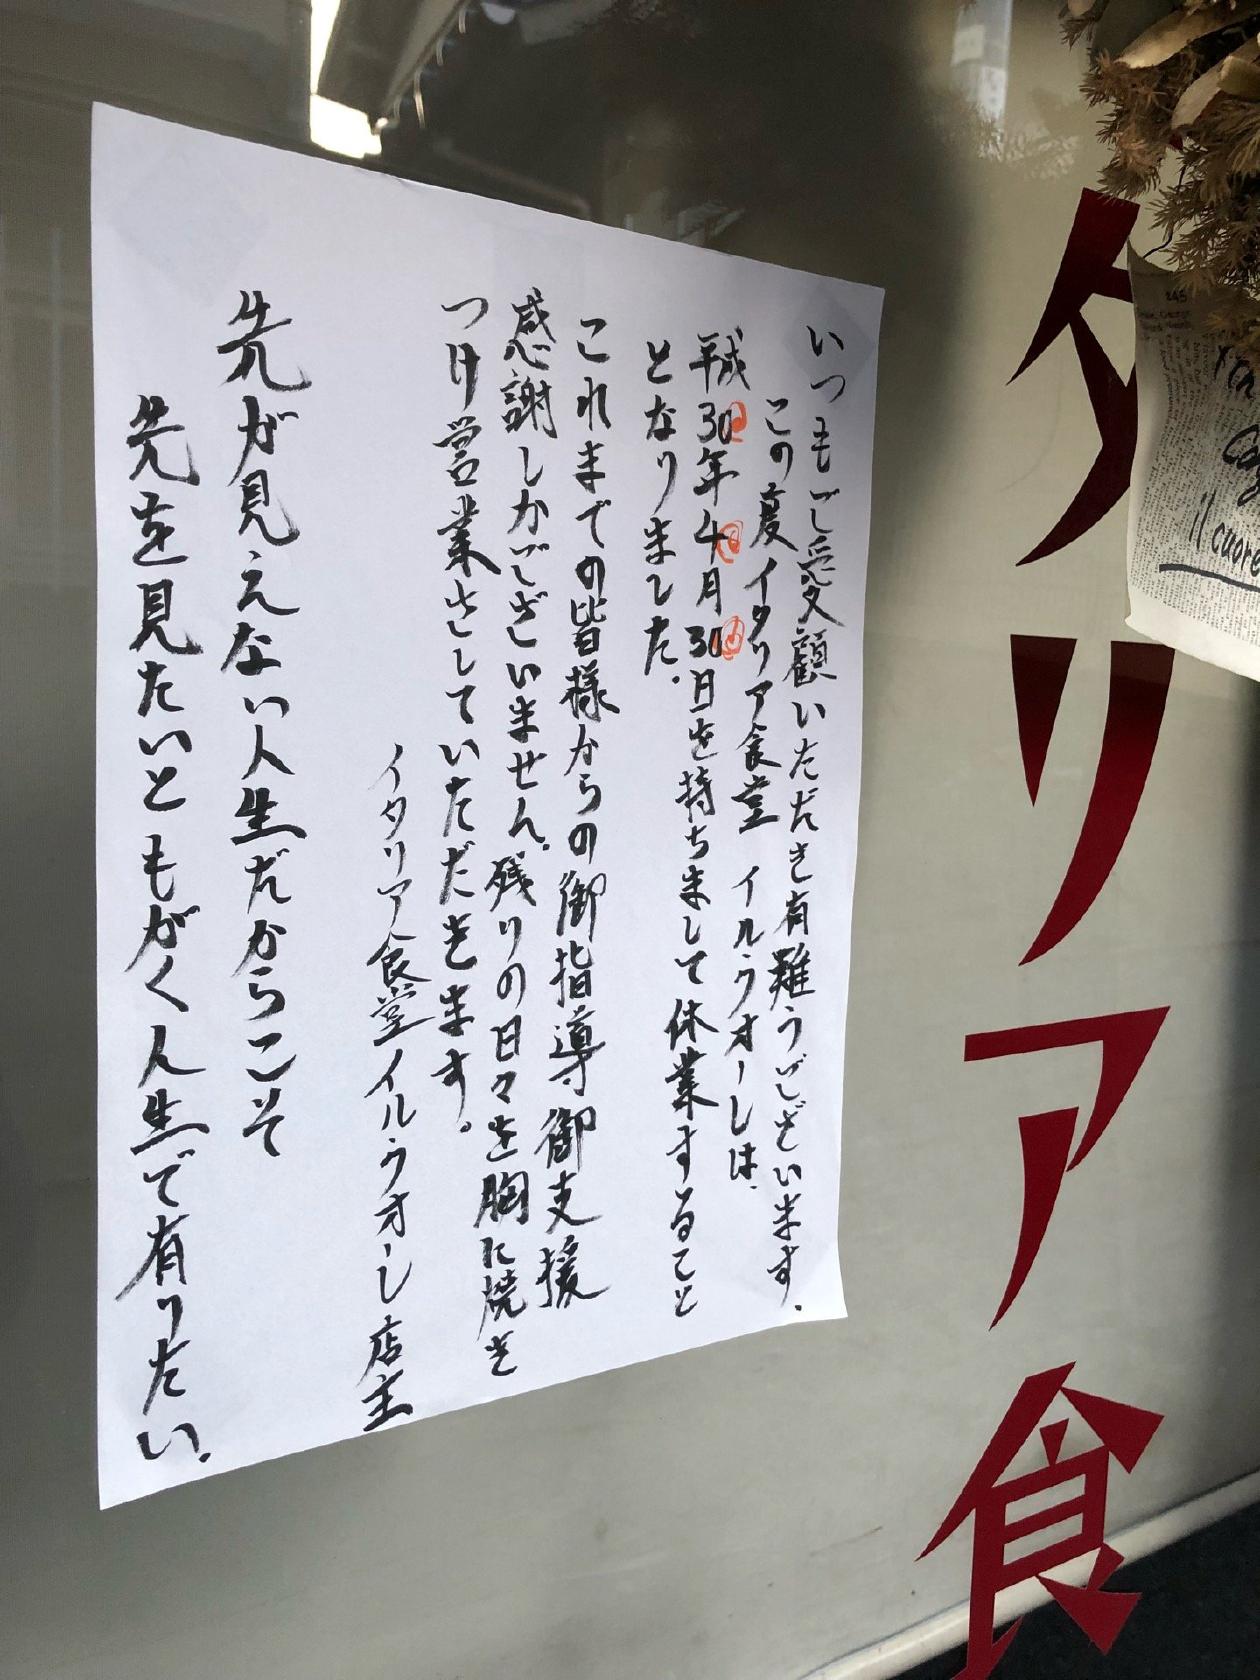 いつもご愛顧いただき有難うございます.
この度イタリア食堂 イルクオーレは.
平成30年4月30日を持ちまして休業すること
となりました.
これまでの皆様からの御指導御支援
感謝しかございません.残りの日々を胸に焼き
つけ営業させていただきます.
イタリア食堂イルクオーレ店主
先が見えない人生だからこそ
先を見たいともがく人生で有りたい.
タリア食
245
il cuore